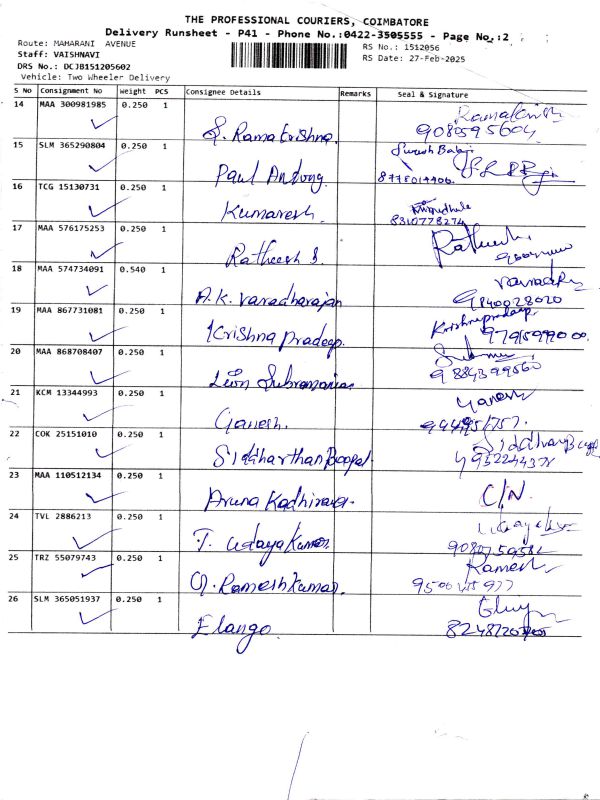 THE PROFESSIONAL COURIERS, COIMBATORE
Delivery Runsheet - P41 - Phone No.:0422-3505555 - Page No.:2
Route: MAHARANI AVENUE
RS No.: 1512056
Staff: VAISHNAVI
RS Date: 27-Feb-2025
DRS No.: DCJB151205602
Vehicle: Two Wheeler Delivery
S No Consignment No Weight PCS Consignee Details Remarks Seal & Signature
14 MAA 300981985 0.250 1
S. Ramakrishna. 9080595604
15 SLM 365290804 0.250 1 Suresh Babu
Paul Antony.
16 TCG 15130731 0.250 1
Kumaresh. 8310778274
17 MAA 576175253 0.250 1
Ratheesh S. Ratheesh
18 MAA 574734091 0.540 1
A.K. Varadharajan 9840028020
19 MAA 867731081 0.250 1 Krishnapradeep
Krishna Pradeep.
20 MAA 868708407 0.250 1
Leon Subramanian 9884399560
21 KCM 13344993 0.250 1 Ganesh
Ganesh.
22 COK 25151010 0.250 1
Siddharthan Boopal.
23 MAA 110512134 0.250 1
Aruna Kadhiravan C/N.
24 TVL 2886213 0.250 1
T. Udaya Kumar.
25 TRZ 55079743 0.250 1 Ramesh
G. Ramesh Kumar.
26 SLM 365051937 0.250 1
Elango.